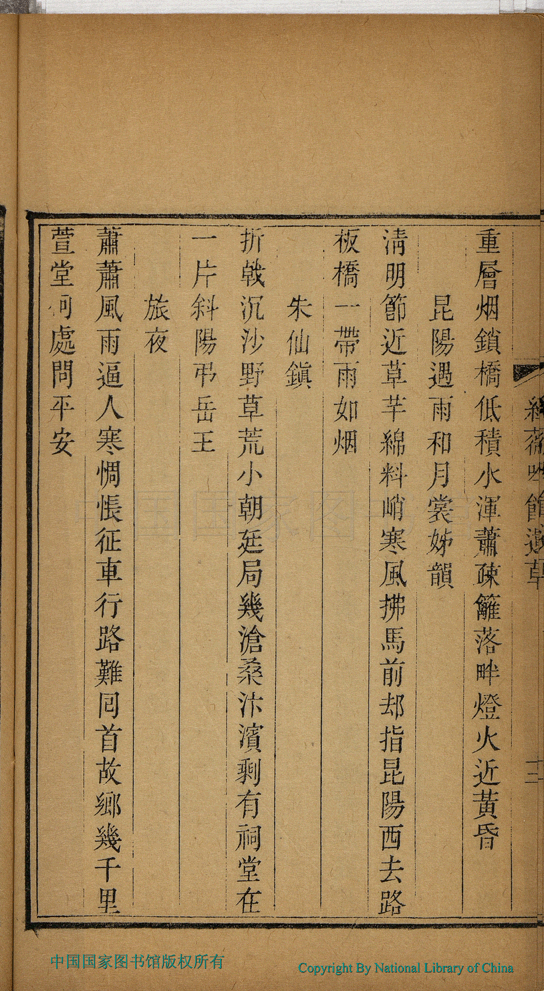 重層烟鎖橋低積水渾蕭疎籬落畔燈火近黃昏
昆陽遇雨和月裳姊韻
淸明節近草芊綿料峭寒風拂馬前却指昆陽西去路
板橋一帶雨如烟
朱仙鎭
折戟沉沙野草荒小朝廷局幾滄桑汴濱剩有祠堂在
一片斜陽弔岳王
旅夜
蕭蕭風雨逼人寒惆悵征車行路難囘首故鄉幾千里
萱堂何處問平安
中国国家图书馆版权所有
Copyright By National Library of China